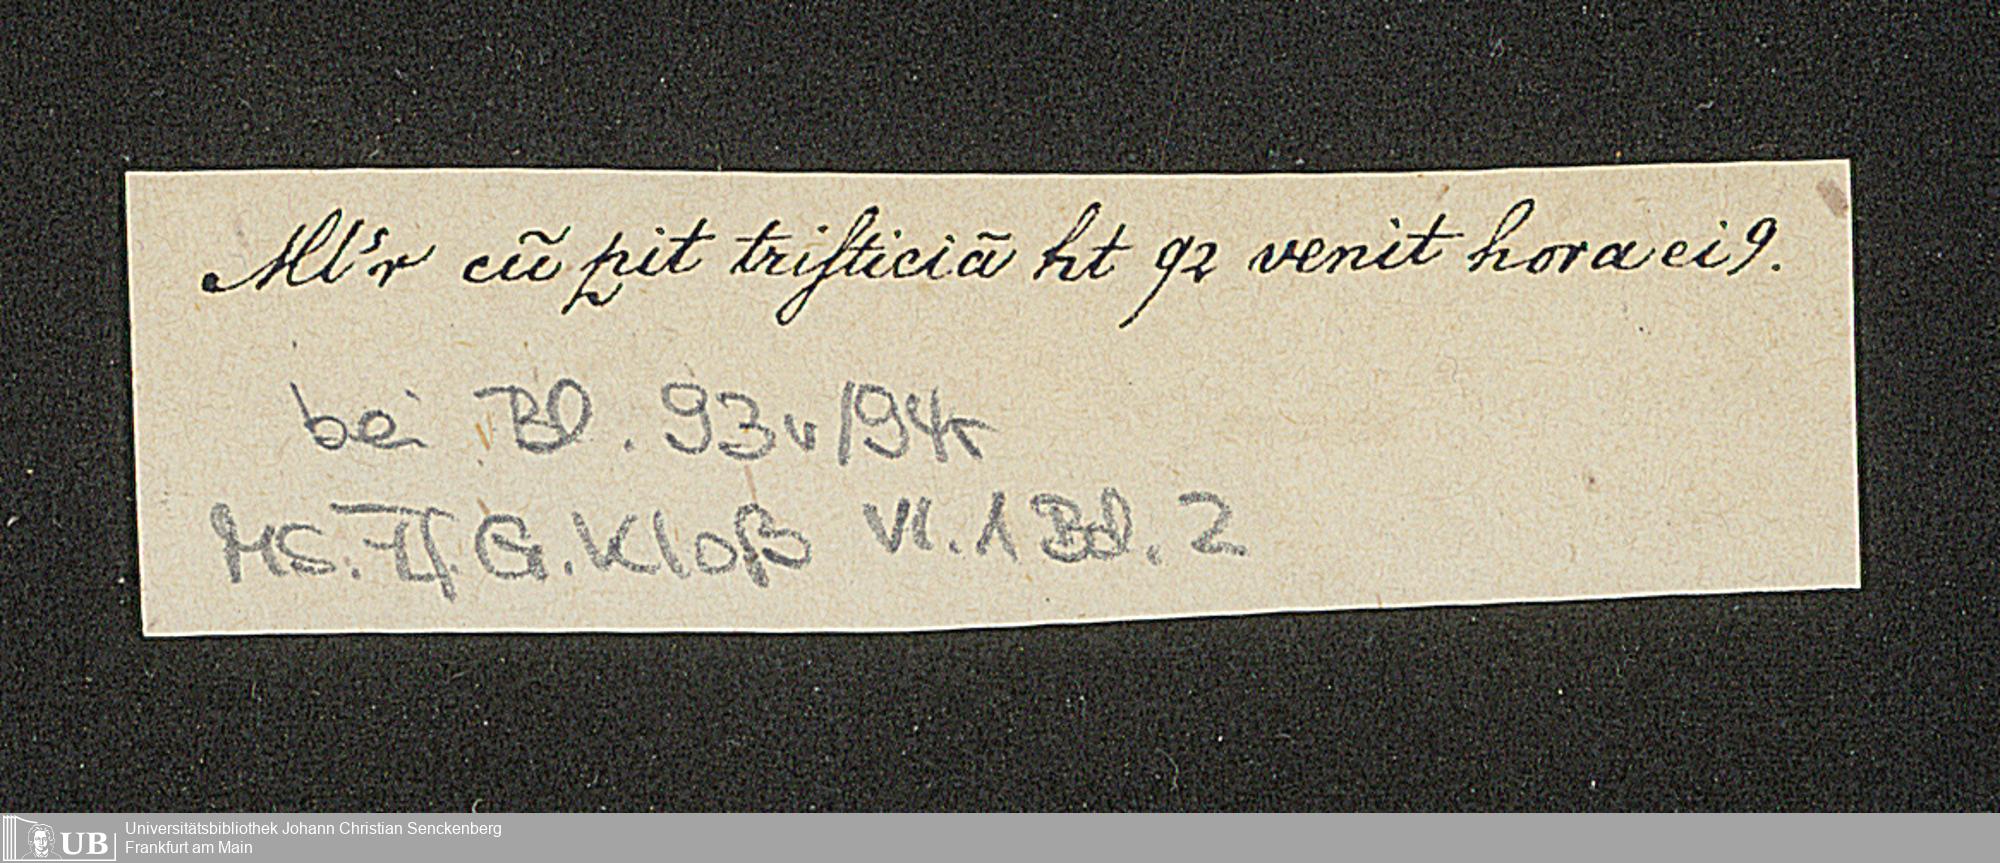 Mlˢr cũ ꝑit triſticiã ht qꝛ venit hora ei9.
bei Bl. 93v/94r
MS. Ff. G. Kloß VI. 1 Bd. 2
UB
Universitätsbibliothek Johann Christian Senckenberg
Frankfurt am Main